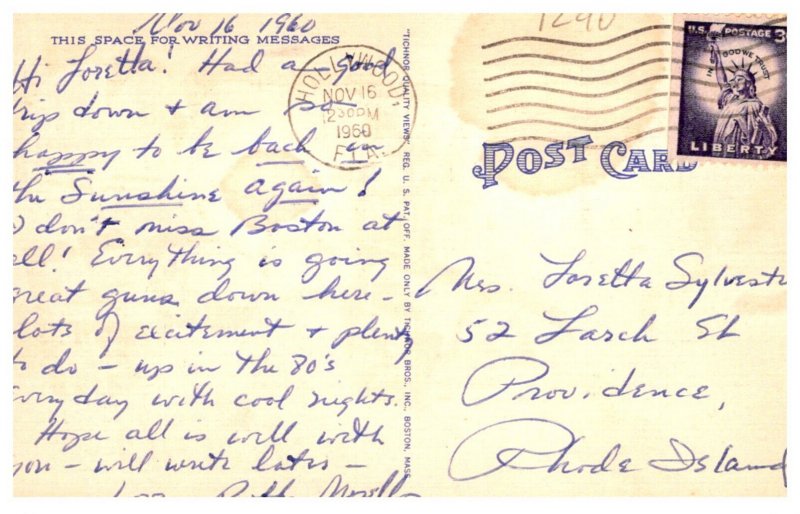 Nov 16 1960
THIS SPACE FOR WRITING MESSAGES
Hi Loretta! Had a good
trip down & am so
happy to be back in
the Sunshine again!
I don't miss Boston at
all! Everything is going
great guns down here -
lots of excitement & plenty
to do - up in the 80's
everyday with cool nights.
Hope all is well with
you - will write later -
"TICHNOR QUALITY VIEWS," REG. U. S. PAT. OFF. MADE ONLY BY TICHNOR BROS., INC., BOSTON, MASS.
HOLLYWOOD,
NOV 16
1960
FLA.
1290
U.S. POSTAGE 3
IN GOD WE TRUST
LIBERTY
POST CARD
Mrs. Loretta Sylvestr
52 Larch St
Providence,
Rhode Island